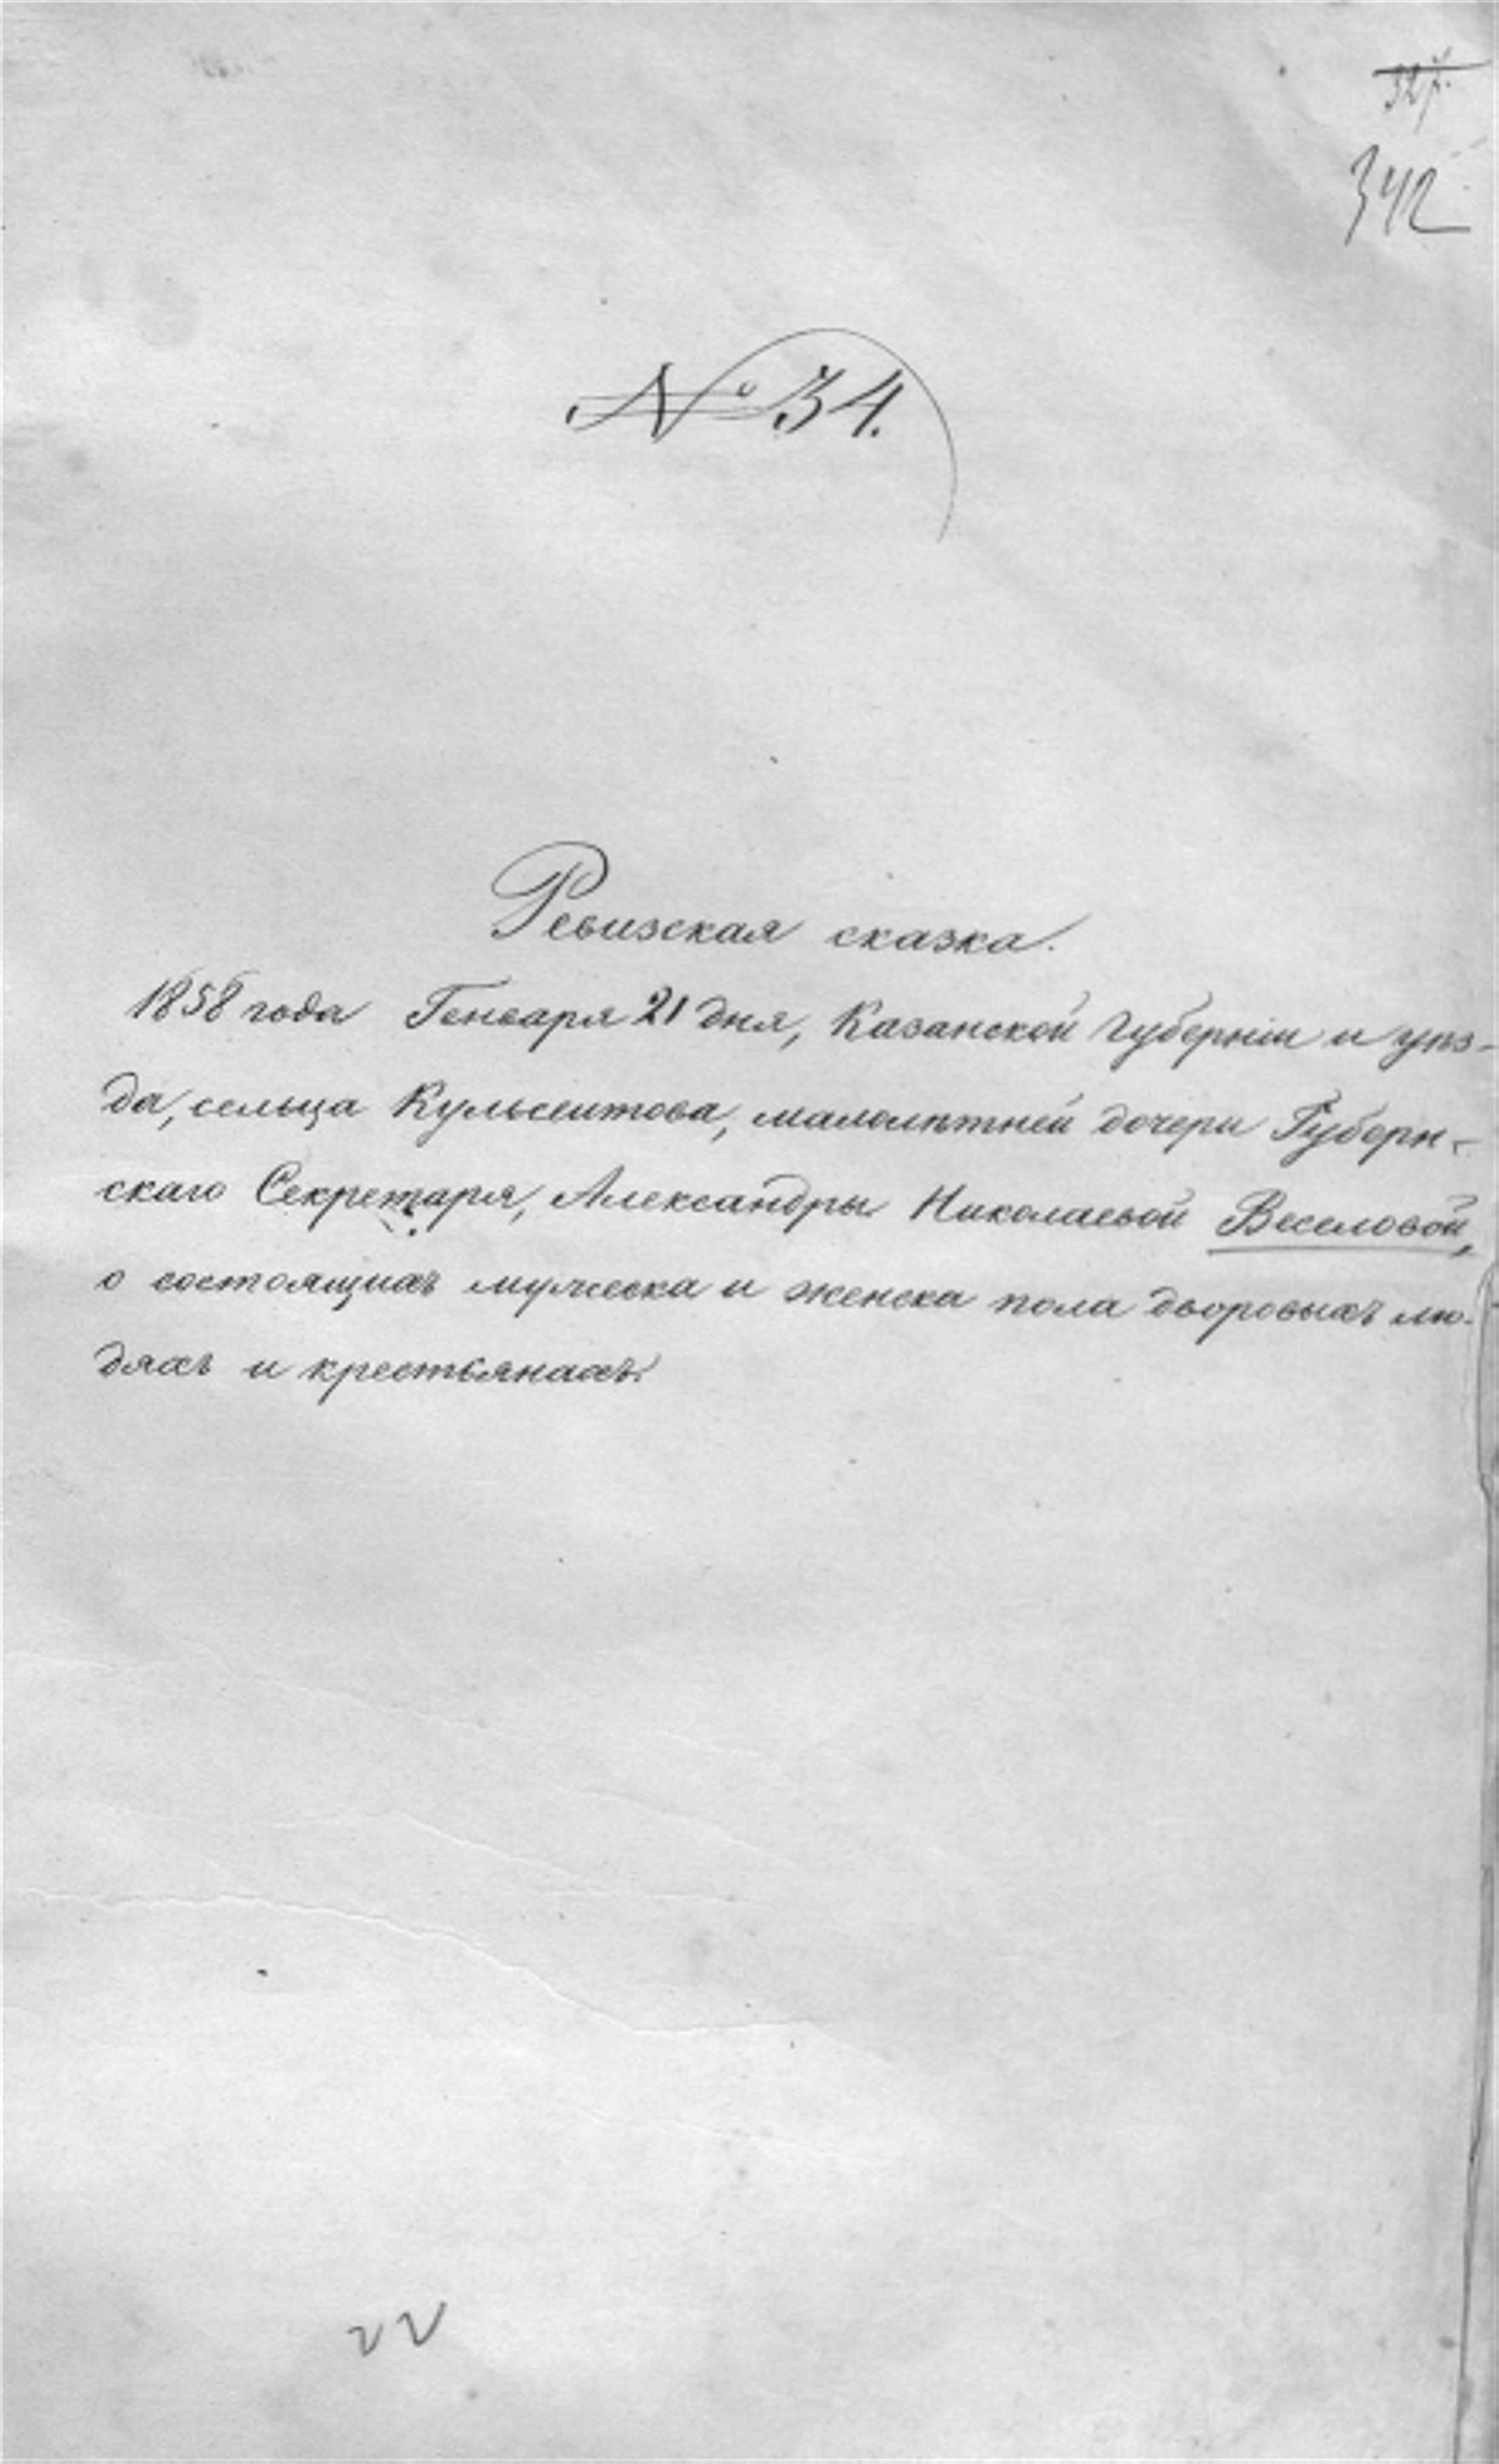 342
№ 34.
Ревизская сказка.
1858 года Генваря 21 дня, Казанской Губерніи и уѣз-
да, сельца Кульсеитова, малолѣтней дочери Губерн-
скаго Секретаря, Александры Николаевой Веселовой,
о состоящихъ мужеска и женска пола дворовыхъ лю-
дяхъ и крестьянахъ.